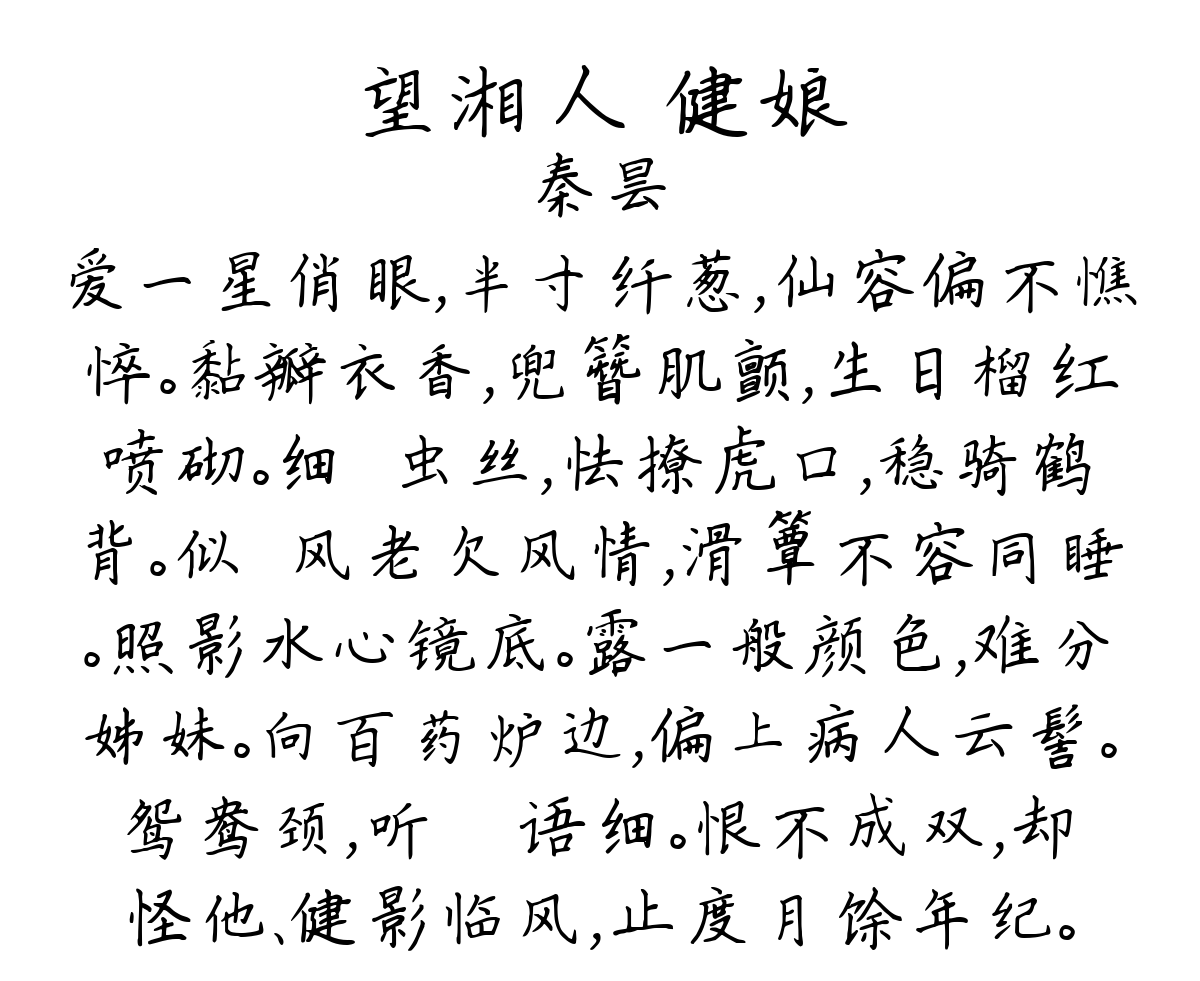 望湘人 健娘
秦昙
爱一星俏眼,半寸纤葱,仙容偏不憔
悴。黏瓣衣香,兜簪肌颤,生日榴红
喷砌。细 虫丝,怯撩虎口,稳骑鹤
背。似 风老欠风情,滑簟不容同睡
。照影水心镜底。露一般颜色,难分
姊妹。向百药炉边,偏上病人云髻。
鸳鸯颈,听 语细。恨不成双,却
怪他、健影临风,止度月馀年纪。